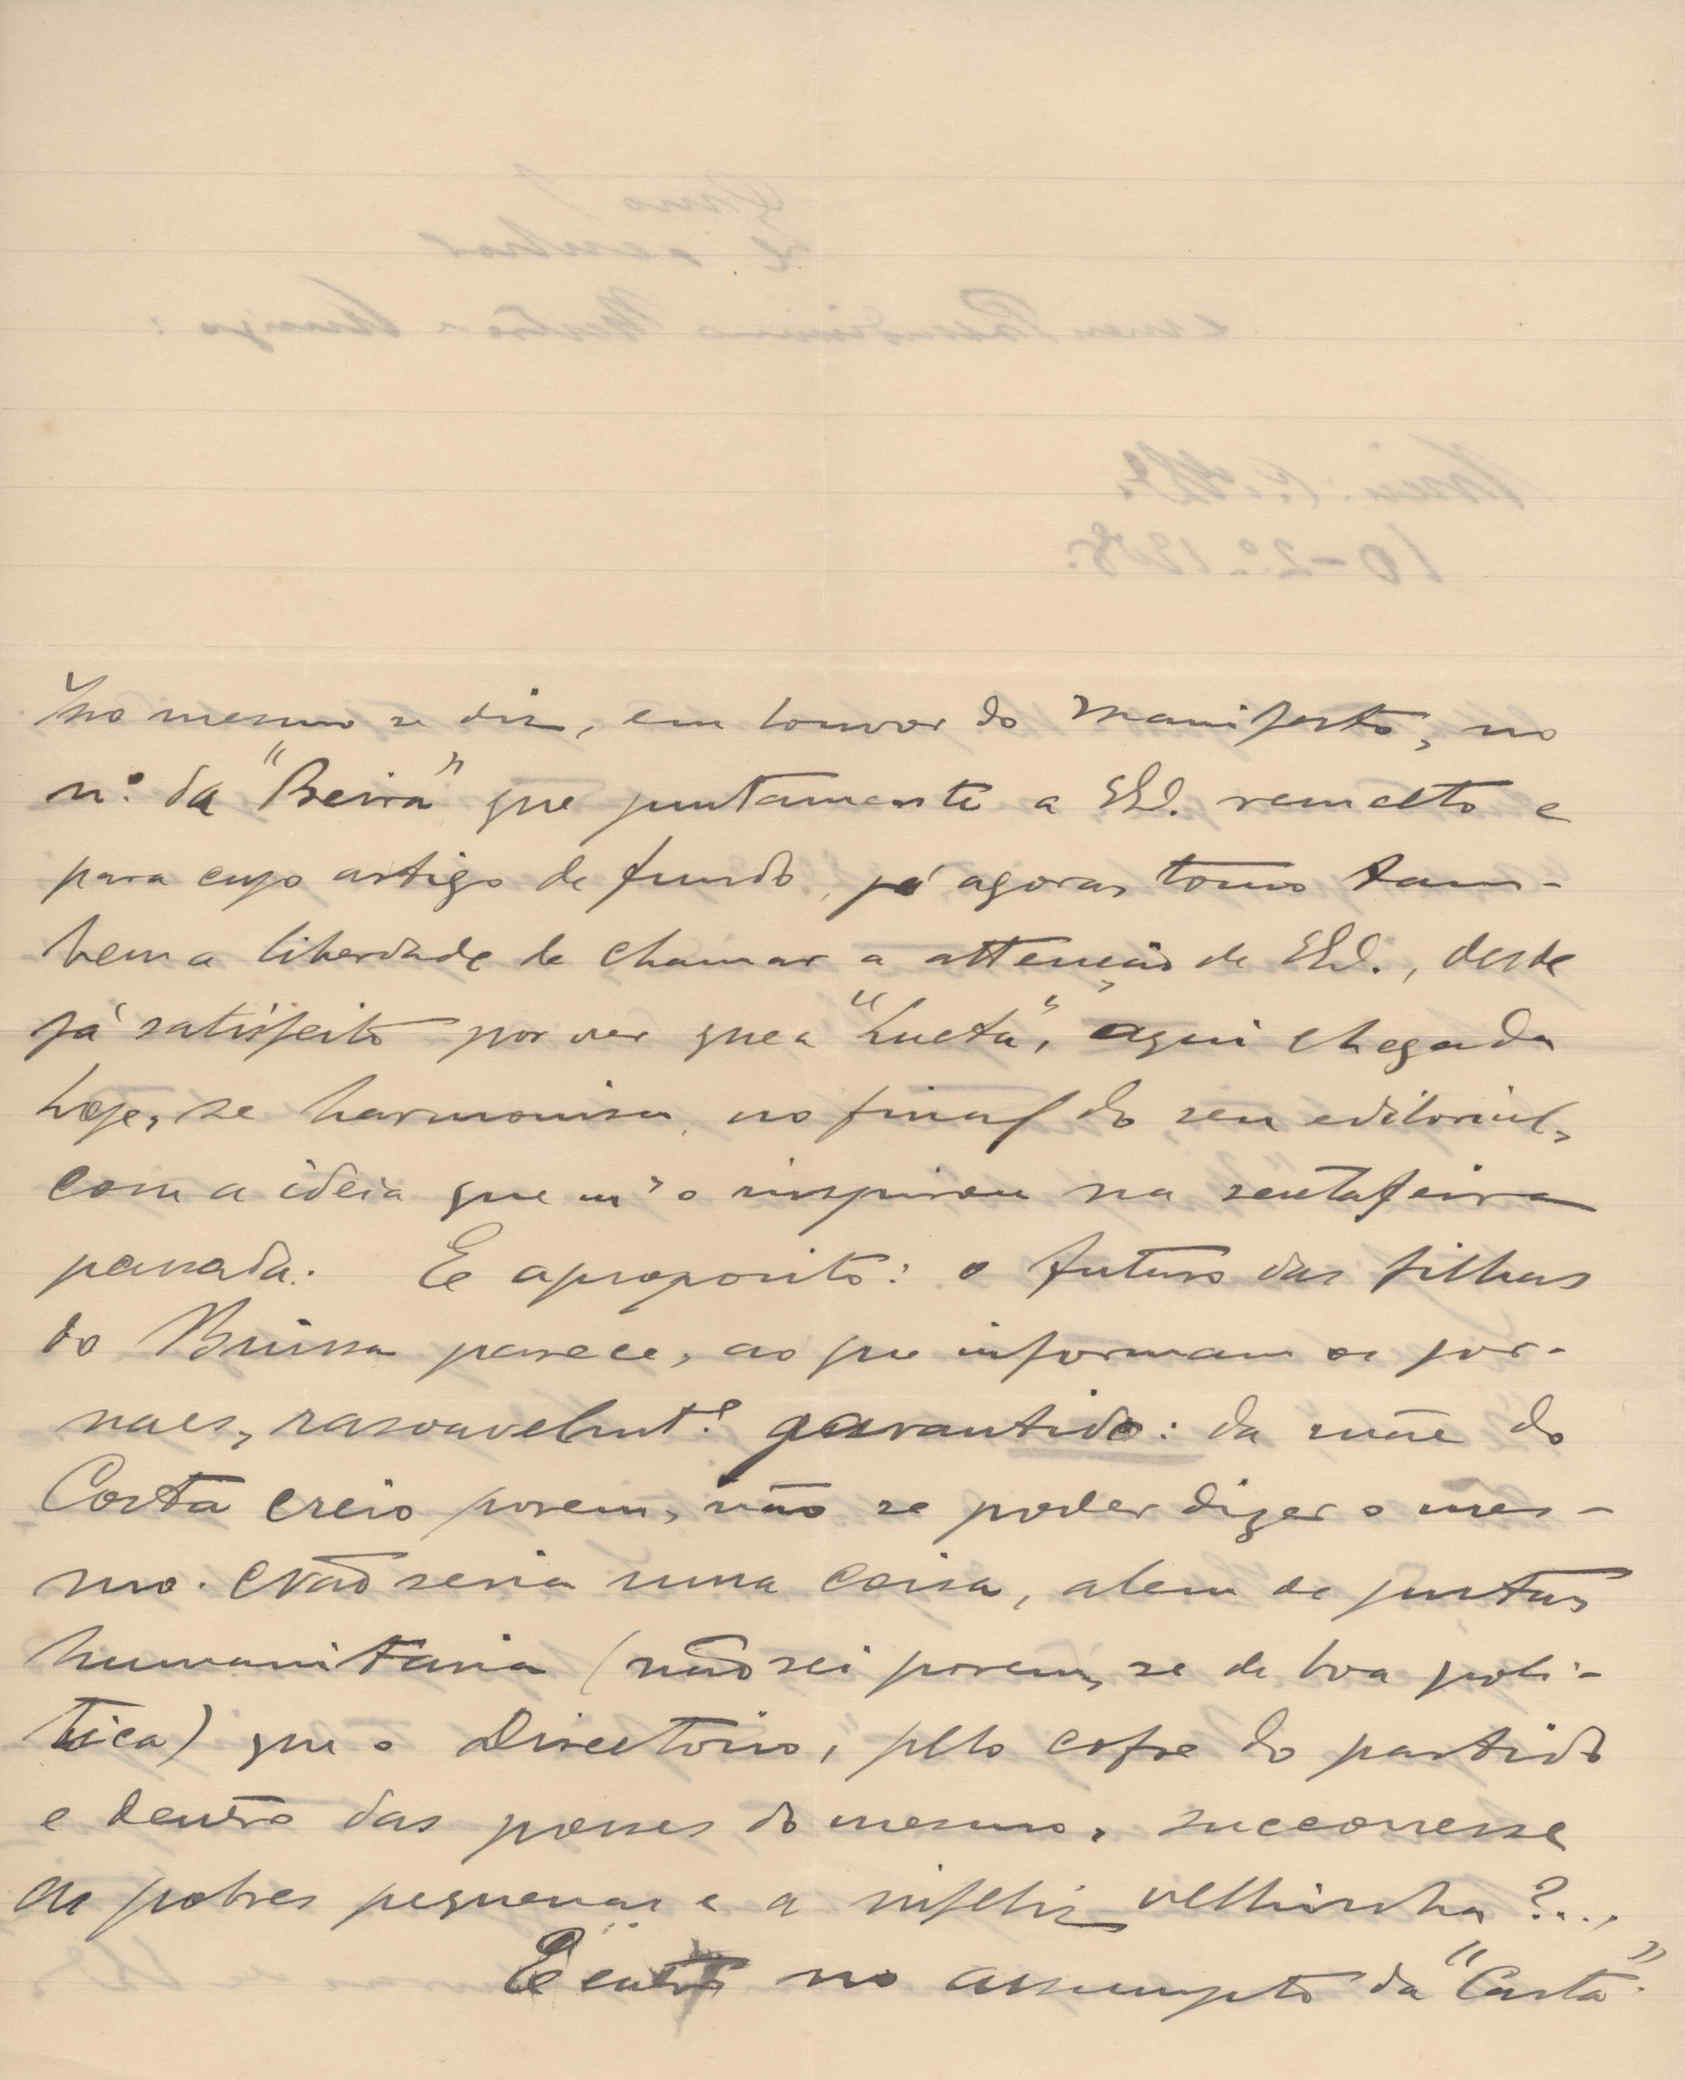 Isso mesmo se diz, em louvor do Manifesto, no
n.º da "Beira" que juntamente a remetto e
para cujo artigo de fundo, já agora, tomo tam-
bem a liberdade de chamar a attenção de desde
já satisfeito por ver que a "Lucta", aqui chegada
hoje, se harmonisa, no final do seu editorial,
com a ideia que m'o inspirou na sextafeira
passada. E aproposito: o futuro das filhas
do Buissa parece, ao que informam os jor-
naes, rasoavelmt.e garantido: da mãe do
Costa creio porem, não se poder dizer o mes-
mo. Não seria uma coisa, alem de justa,
humanitaria (não sei porem, se de boa poli-
tica) que o Directorio, pelo cofre do partido
e dentro das posses do mesmo, soccorresse
as pobres pequenas e a infeliz velhinha?...
E entro no assumpto da "Carta".